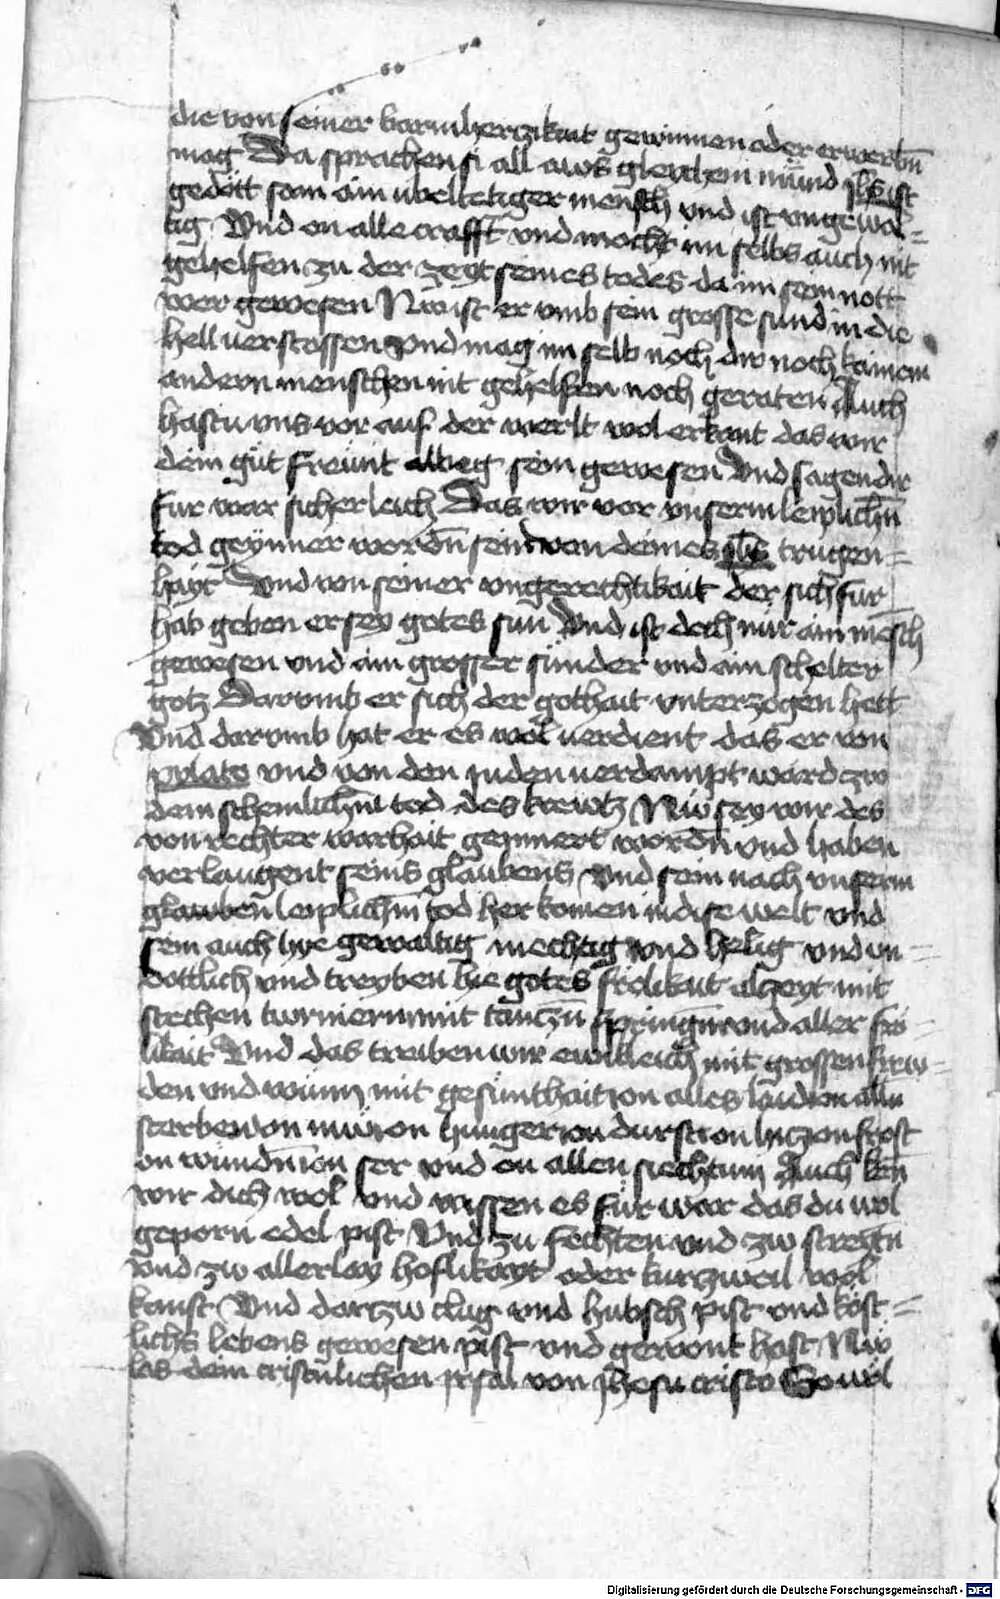 die von seiner barmherczikait gewinnen oder erwerbñ
mag Da sprachen si all aws gleichem mund Jhs ist
gedött sam ain ubeltetiger mensch vnd ist vngewal=
tig Vnd on alle crafft vnd mocht im selbs auch nit
gehelfen zu der zeyt seines todes da im sein nott
wer gewesen Nw ist er vmb sein grosse sund in die
hell verstossen Vnd mag im selb noch dir noch kainem
andern menschen nit gehelffen noch geraten Auch
hastu vns vor auf der werlt wol erkant das wir
dein güt freünt albeg sein gewesen Vnd sagen dir
fur war sicherleich Das wir vor vnserm leiplichñ
tod geynner wordñ sein von deines Jhs trugen=
hayt Vnd von seiner vngerechtikait der sich fur
hab geben er sey gotes sun Vnd ist doch nür ain mēsch
gewesen vnd ain grosser sünder vnd ain schelter
gotz Darvmb er sich der gothait vnterzogen hett
Vnd darvmb hat er es wol verdient das er von
pylato vnd von den juden verdampt ward zw
dem schemlichñ tod des krewtz Nw sey wir des
von rechter warhait geynnert wordñ vnd haben
verlaugent seins glaubens Vnd sein nach vnserm
glawben leiplichm̄ tod her komen in dise welt vnd
sein auch hye gewaltig mechtig vnd helig vnd vn=
dottlich vnd treyben hye gotes frölikait alzeyt mit
stechen turniernn mit tanczñ springñ vnd aller frö=
likait Vnd das treiben wir ewikleich mit grossen frew=
den vnd wünn mit gesunthait on alles laid on alls
sterben on müe on hunger on durst on hicz on frost
on wundñ on ser vnd on allen siechtum Auch kēn
wir dich wol vnd wissen es für war das du wol
geporn edel pist Vnd zu fechten vnd zw streytñ
vnd zw allerlay hoflikayt oder kurzweil wol
kanst Vnd darzw clug vnd hubsch pist vnd köst=
lichs lebens gewesen pist vnd gewont hast Nw
las dein cristñlichen irsal von Jhesu cristo So wil
Digitalisierung gefördert durch die Deutsche Forschungsgemeinschaft - DFG